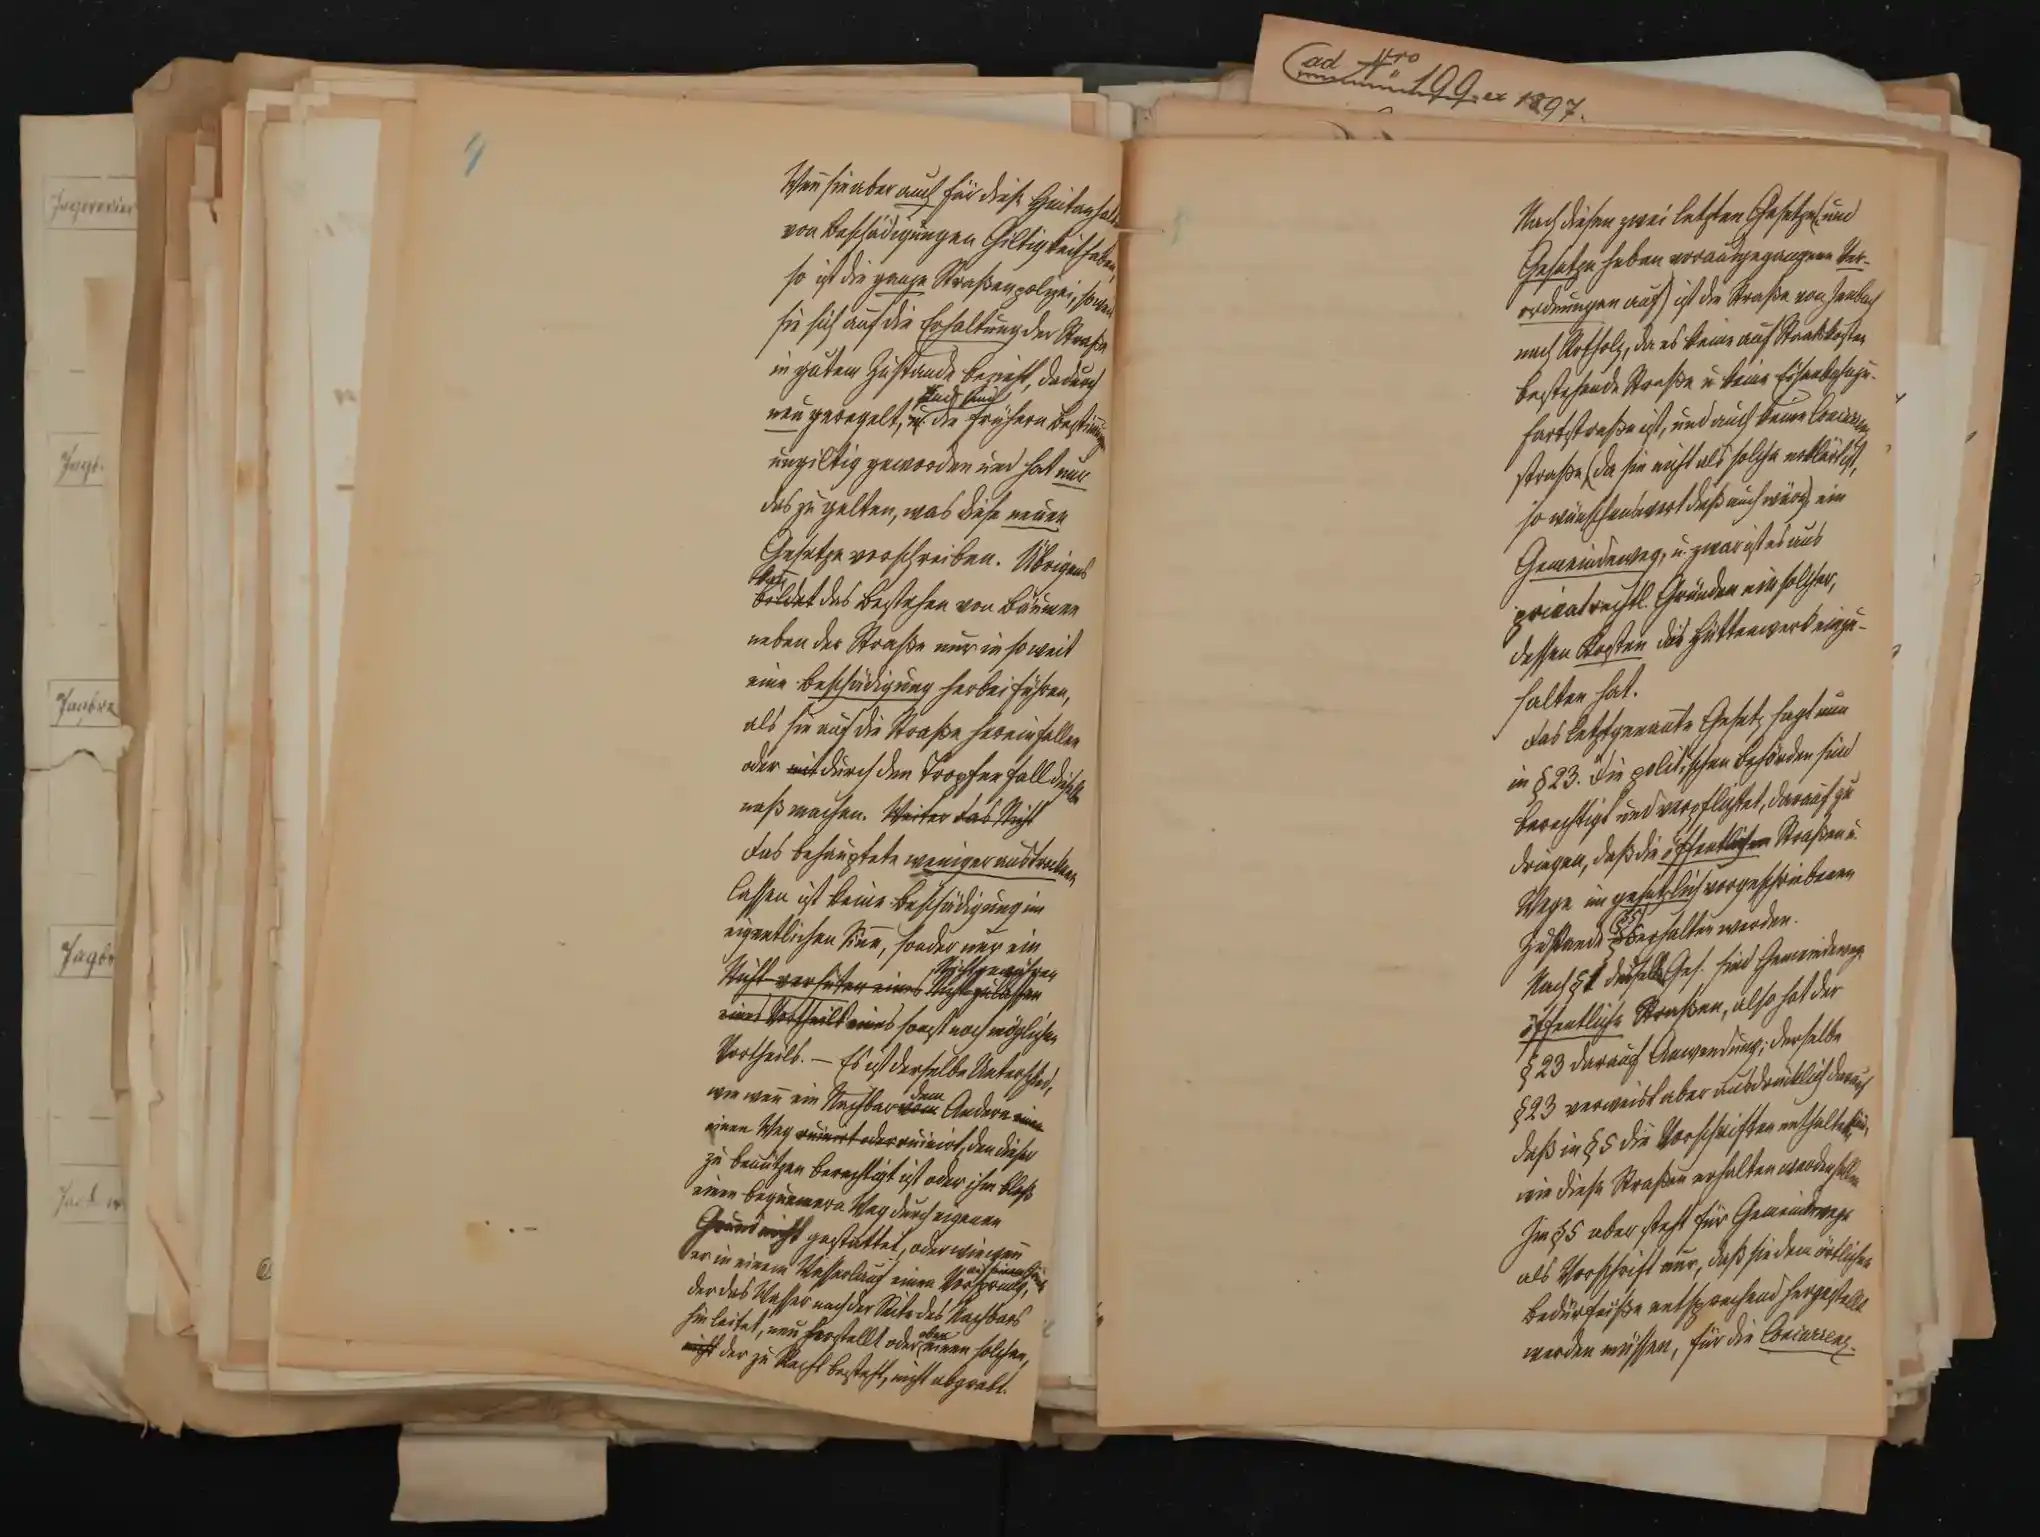 ad Nro 199 ex 1897.
4
Wenn sie aber auch für diese Hintanhal
von Beschädigungen Giltigkeit haben,
so ist die ganze Straßenpolizei, soweit
sie sich auf die Erhaltung der Straße
in gutem Zustande bezieht, dadurch
neu geregelt, sind auch die frühern
ungiltig geworden und hat nur
das zu gelten, was diese neuen
Gesetze verschreiben. Übrigens
kann
bildet das Bestehen von Bäumen
neben der Straße nur in so weit
eine Beschädigung herbeiführen,
als sie auf die Straße hereinfallen
oder mit durch den Tropfenfall dieselbe
naß machen. Weiter das Nicht
Das behauptete weniger austrocknen
lassen ist keine Beschädigung im
eigentlichen Sinn, sonder nur ein
Nichtgewähren
Nicht verhüten eines Nichtzulassen
eines Vortheils eines sonst noch möglichen
Vortheils. — Es ist derselbe Unterschied,
dem
wie wenn ein Nachbar vom Andern einen
einen Weg ruinirt oder ruinirt, den dieser
zu benützen berechtigt ist oder ihm bloß
einen bequemern Weg durch eigenen
Grund nicht gestattet, oder wie wenn
er in einem Wasserlauf einen Vorsprung,
der das Wasser nach der Seite des Nachbars
hinleitet, neu herstellt oder aber einen solchen,
nicht der zu Recht besteht, nicht abgrabt.
Nach diesen zwei letzten Gesetze (und
Gesetze heben vorausgegangene Ver-
ordnungen auf) ist die Straße von Jenbach
nach Rotholz, da es keine auf Staatskosten
bestehende Straße u. keine Eisenbahnzu-
fahrtstraße ist, und auch keine Concurrenz
straße (da sie nicht als solche erklärt ist,
so wünschenswert dieß auch wäre) ein
Gemeindeweg, u. zwar ist es aus
privatrechtl. Gründen ein solcher,
dessen Kosten das Hüttenwerk einzu-
halten hat.
Das letztgenannte Gesetz sagt nun
in § 23. Die politischen Behörden sind
berechtigt und verpflichtet, darauf zu
dringen, daß die öffentlichen Straßen u.
Wege im gesetzlich vorgeschriebenen
Zustande (§5) erhalten werden.
Nach § 1 desselb. Ges. sind Gemeindewege
öffentliche Straßen, also hat der
§ 23 darauf Anwendung; derselbe
§ 23 verweist aber ausdrücklich darauf
daß in § 5 die Vorschriften enthalten sind,
wie diese Straßen erhalten werden sollen
Im § 5 aber steht für Gemeindewege
als Vorschrift nur, daß sie dem örtlichen
Bedürfniße entsprechend hergestellt
werden müssen, für die Concurrenz-